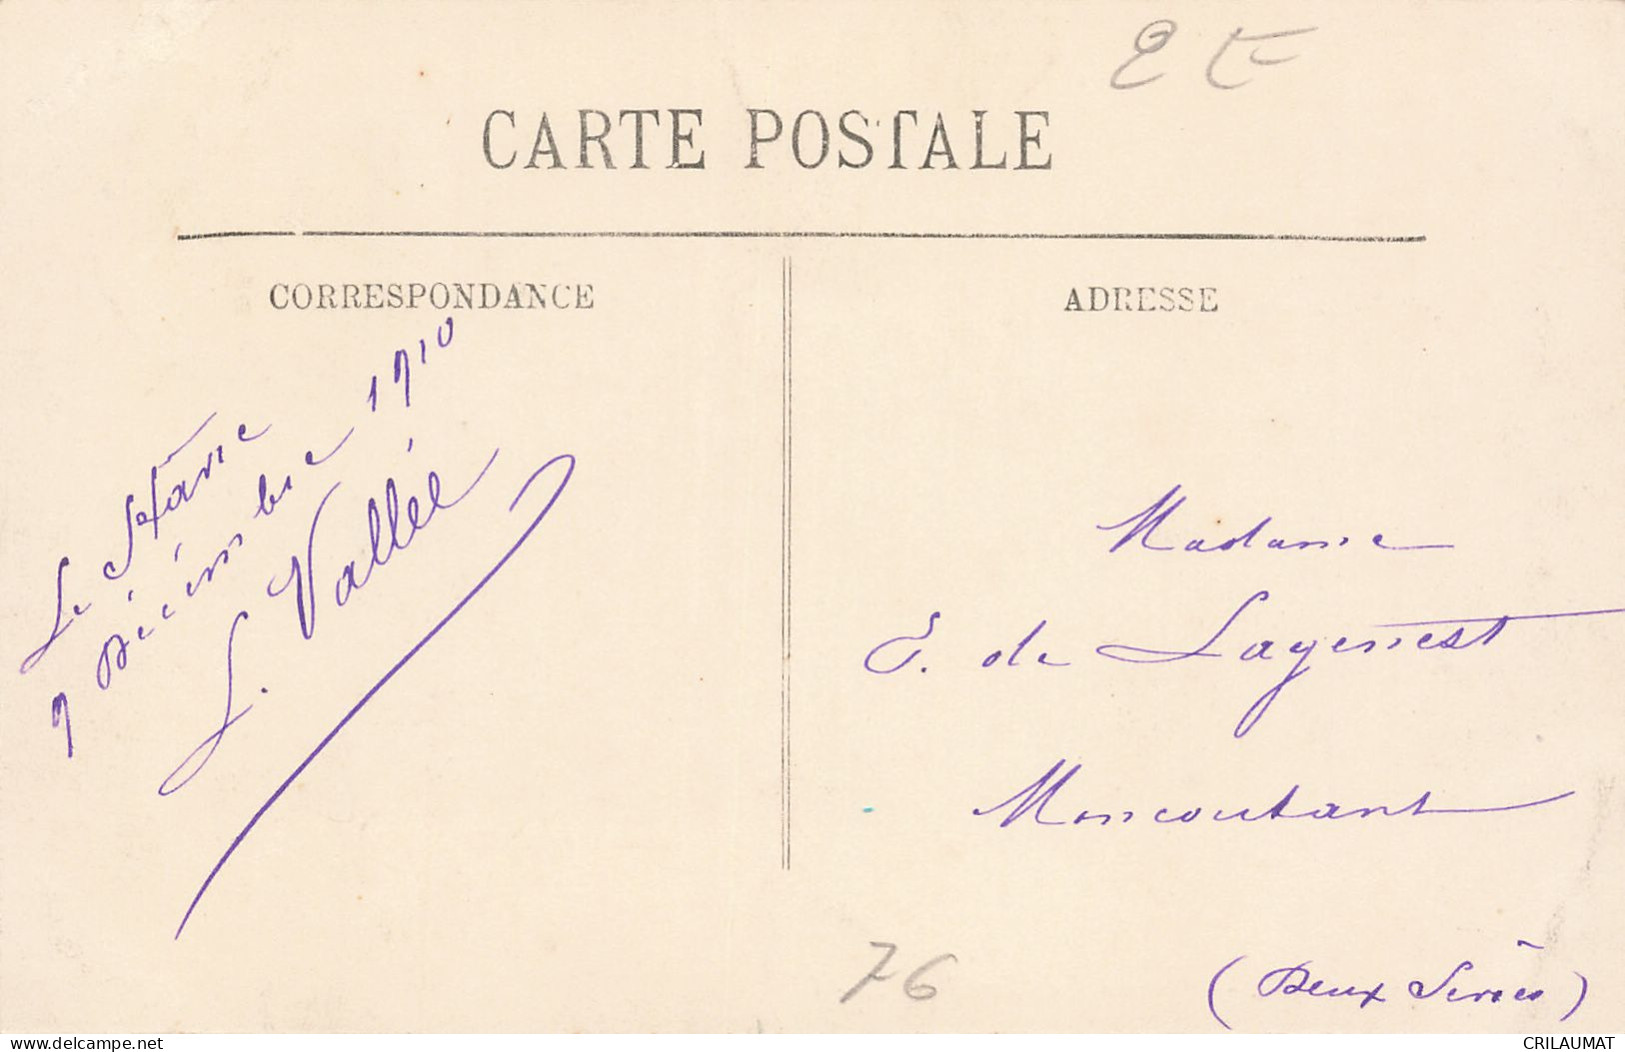 2 E
CARTE POSTALE
CORRESPONDANCE
Le Havre
9 Décembre 1910
L. Vallée
ADRESSE
Madame
E. de Lagenest
Moncoutant
(Deux Sèvres)
76
www.delcampe.net
CRILAUMAT